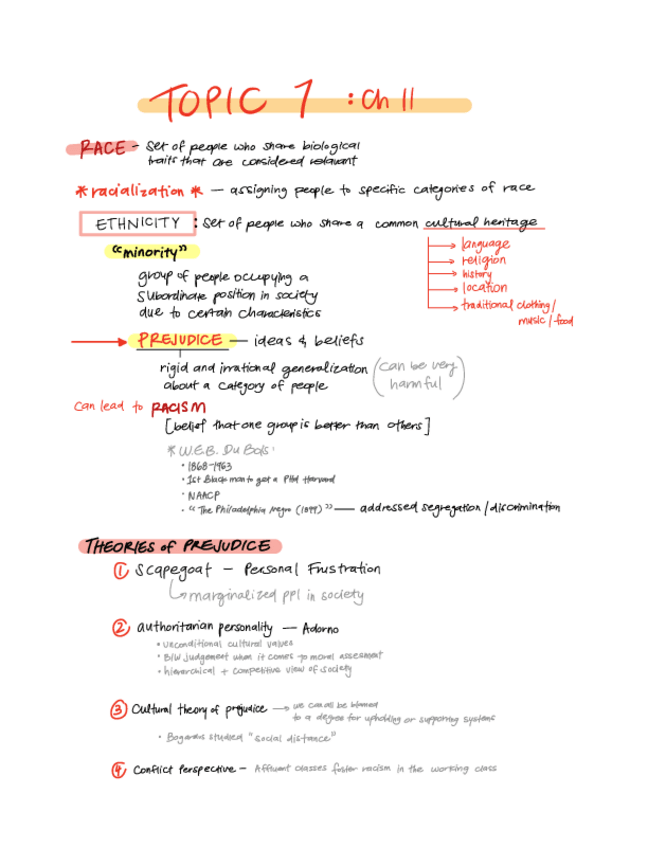 TOPIC 7 : Ch 11
RACE - set of people who share biological
traits that are considered relevant
*racialization* — assigning people to specific categories of race
ETHNICITY : set of people who share a common cultural heritage
language
religion
history
location
traditional clothing/
music/food
"minority"
group of people occupying a
subordinate position in society
due to certain characteristics
PREJUDICE — ideas & beliefs
rigid and irrational generalization
about a category of people
(can be very
harmful)
can lead to RACISM
[belief that one group is better than others]
* W.E.B. Du Bois:
• 1868-1963
• 1st Black man to get a PHd Harvard
• NAACP
• "The Philadelphia Negro (1899)" — addressed segregation/discrimination
THEORIES of PREJUDICE
① Scapegoat — Personal Frustration
marginalized ppl in society
② authoritarian personality — Adorno
• unconditional cultural values
• B/W judgement when it comes to moral assesment
• hierarchical + competitive view of society
③ Cultural theory of prejudice → we can all be blamed
to a degree for upholding or supporting systems
• Bogardus studied "social distance"
④ Conflict Perspective — Affluent classes foster racism in the working class